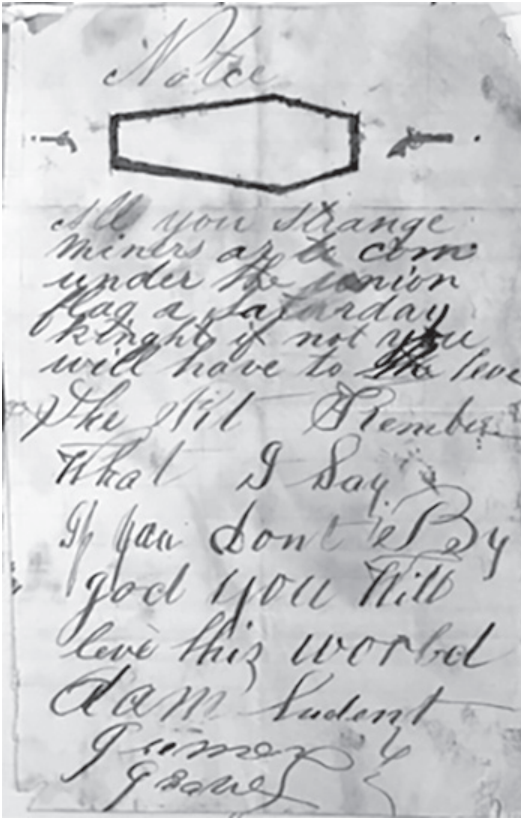 Notce
All you strange
miners ar to com
under the union
flag a Saturday
kinght if not you
will have to the leve
the Pit Rember
What I Say
If you dont By
god you Will
leve this world
dam Sudent